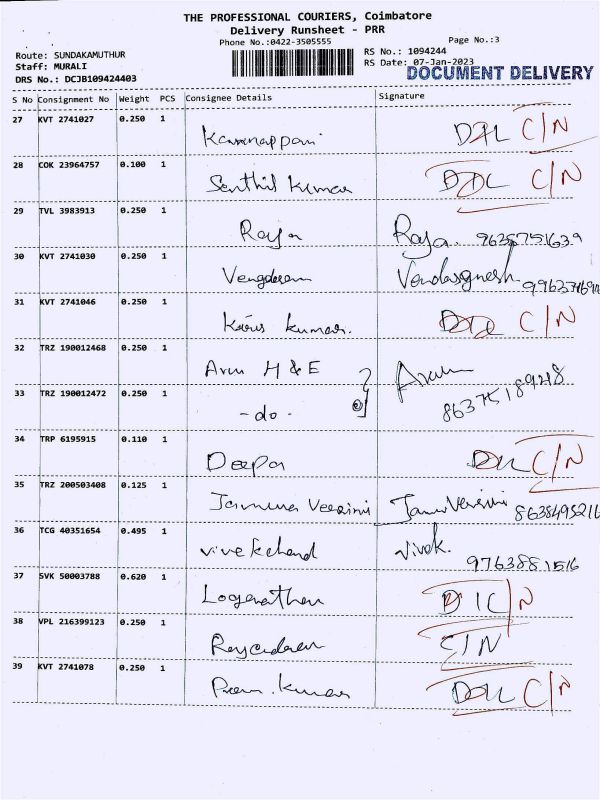 THE PROFESSIONAL COURIERS, Coimbatore
Delivery Runsheet - PRR
Phone No.:0422-3505555
Page No.:3
Route: SUNDAKAMUTHUR
RS No.: 1094244
Staff: MURALI
RS Date: 07-Jan-2023
DRS No.: DCJB109424403
DOCUMENT DELIVERY
S No Consignment No Weight PCS Consignee Details Signature
27 KVT 2741027 0.250 1
C/N
28 COK 23964757 0.100 1
Senthil Kumar C/N
29 TVL 3983913 0.250 1
Raja Raja.
30 KVT 2741030 0.250 1
31 KVT 2741046 0.250 1
kumar. C/N
32 TRZ 190012468 0.250 1
Arun H & E
33 TRZ 190012472 0.250 1
- do - 8637518948
34 TRP 6195915 0.110 1
Deepa C/N
35 TRZ 200503408 0.125 1
36 TCG 40351654 0.495 1
Vivek.
9763881516
37 SVK 50003788 0.620 1
Loganathan
38 VPL 216399123 0.250 1
39 KVT 2741078 0.250 1
Prem. Kumar C/N